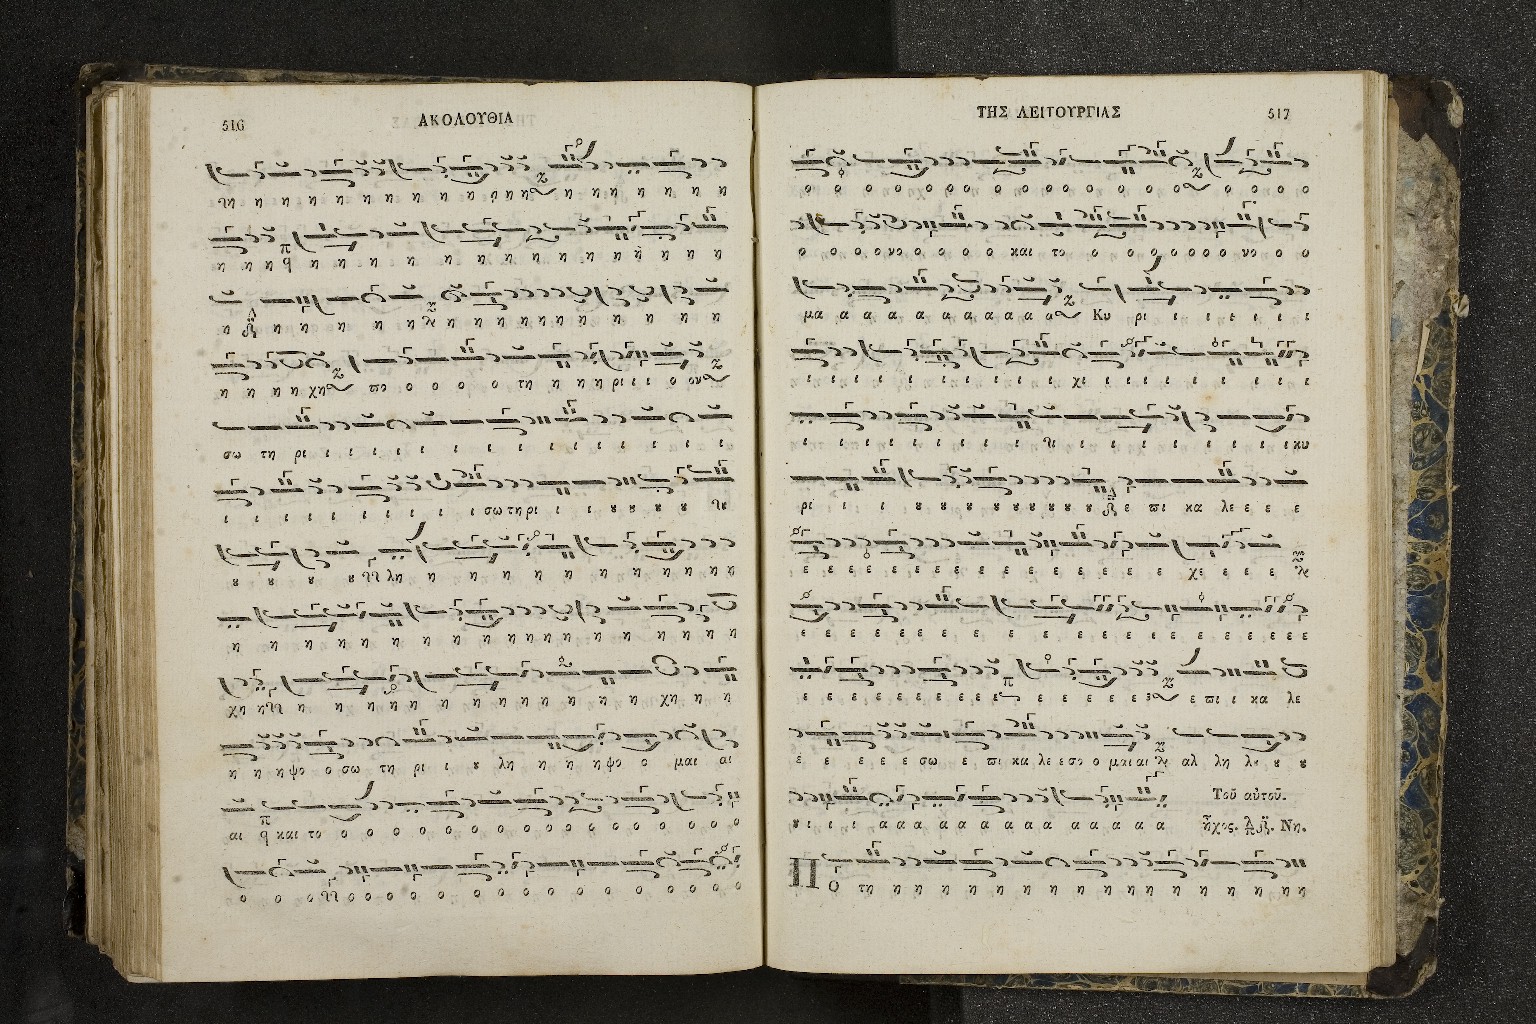 516
ΑΚΟΛΟΥΘΙΑ
τη η η η η η η η η η η η η η η η η η
η η η η η η η η η η η η η η η η
η η η η η η η η η η η η η η η η
η η η η χη πο ο ο ο ο τη η η η ρι ι ι ο ον
σω τη ρι ι ι ι ι ι ι ι ι ι ι ι ι ι
ι ι ι ι ι ι ι ι ι ι σω τη ρι ι ι ȣ ȣ ȣ ȣ
ȣ ȣ ȣ ȣ λη η η η η η η η η η η
η η η η η η η η η η η η η η η η
χη η η η η η η η η η η η η η χη η η
η η η ψο ο σω τη ρι ι ȣ λη η η η ψο ο μαι αι
αι και το ο ο ο ο ο ο ο ο ο ο ο ο ο ο ο ο
ο ο ο ο ο ο ο ο ο ο ο ο ο ο ο ο ο
ΤΗΣ ΛΕΙΤΟΥΡΓΙΑΣ
517
ο ο ο ο ο ο ο ο ο ο ο ο ο ο ο ο ο ο ο ο
ο ο ο ο νο ο ο ο ο και το ο ο ο ο ο ο ο νο ο ο
μα α α α α α α α α α α Κυ ρι ι ι ι ι ι
ι ι ι ι ι ι ι ι ι χι ι ι ι ι ι ι ι
ι ι ι ι ι ι ι ι ι ι ι ι ι ι ι ι κυ
ρι ι ι ȣ ȣ ȣ ȣ ȣ ȣ ȣ ȣ ȣ ȣ ε πι κα λε ε ε ε
ε ε ε ε ε ε ε ε ε ε ε ε ε ε ε ε χε ε ε ε
ε ε ε ε ε ε ε ε ε ε ε ε ε ε ε ε ε ε ε
ε ε ε ε ε ε ε ε ε ε ε ε ε ε ε ε ε ε πι ι κα λε
ε ε ε ε ε σω ε πι κα λε ε σο ο μαι αι αλ λη λȣ ȣ ȣ
ȣ ι ι ι α α α α α α α α α α α α α
Τοῦ αὐτοῦ.
ἦχος. Νη.
Πο τη η η η η η η η η η η η η η η η η